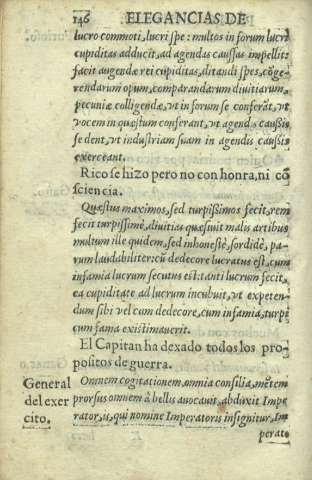 146 ELEGANCIAS DE
lucro commoti, lucri spe: multos in forum lucri
cupiditas adducit, ad agendas caussas impellit:
facit augendæ rei cupiditas, ditandi spes, cōge-
rendarum opum, comparandarum divitiarum,
pecuniæ colligendæ, vt in forum se conferāt, vt
vocem in quæstum conferant, vt agendis caussis
se dent, vt industriam suam in agendis caussis
exerceant.
Rico se hizo pero no con honra, ni cō
sciencia.
Quæstus maximos, sed turpissimos fecit, rem
fecit turpissimè, divitias quæsiuit malis artibus
multum ille quidem, sed inhonestè, sordidè, pa-
rum laudabiliter: cū dedecore lucratus est, cum
infamia lucrum secutus est: tanti lucrum fecit,
ea cupiditate ad lucrum incubuit, vt expeten-
dum sibi vel cum dedecore, cum infamia, turpi
cum fama existimauerit.
El Capitan ha dexado todos los pro-
positos de guerra.
General
del exer
cito.
Omnem cogitationem, omnia consilia, mētem
prorsus omnem à bellis auocauit, abduxit Impe
rator, is, qui nomine Imperatoris insignitur, Im-
perato